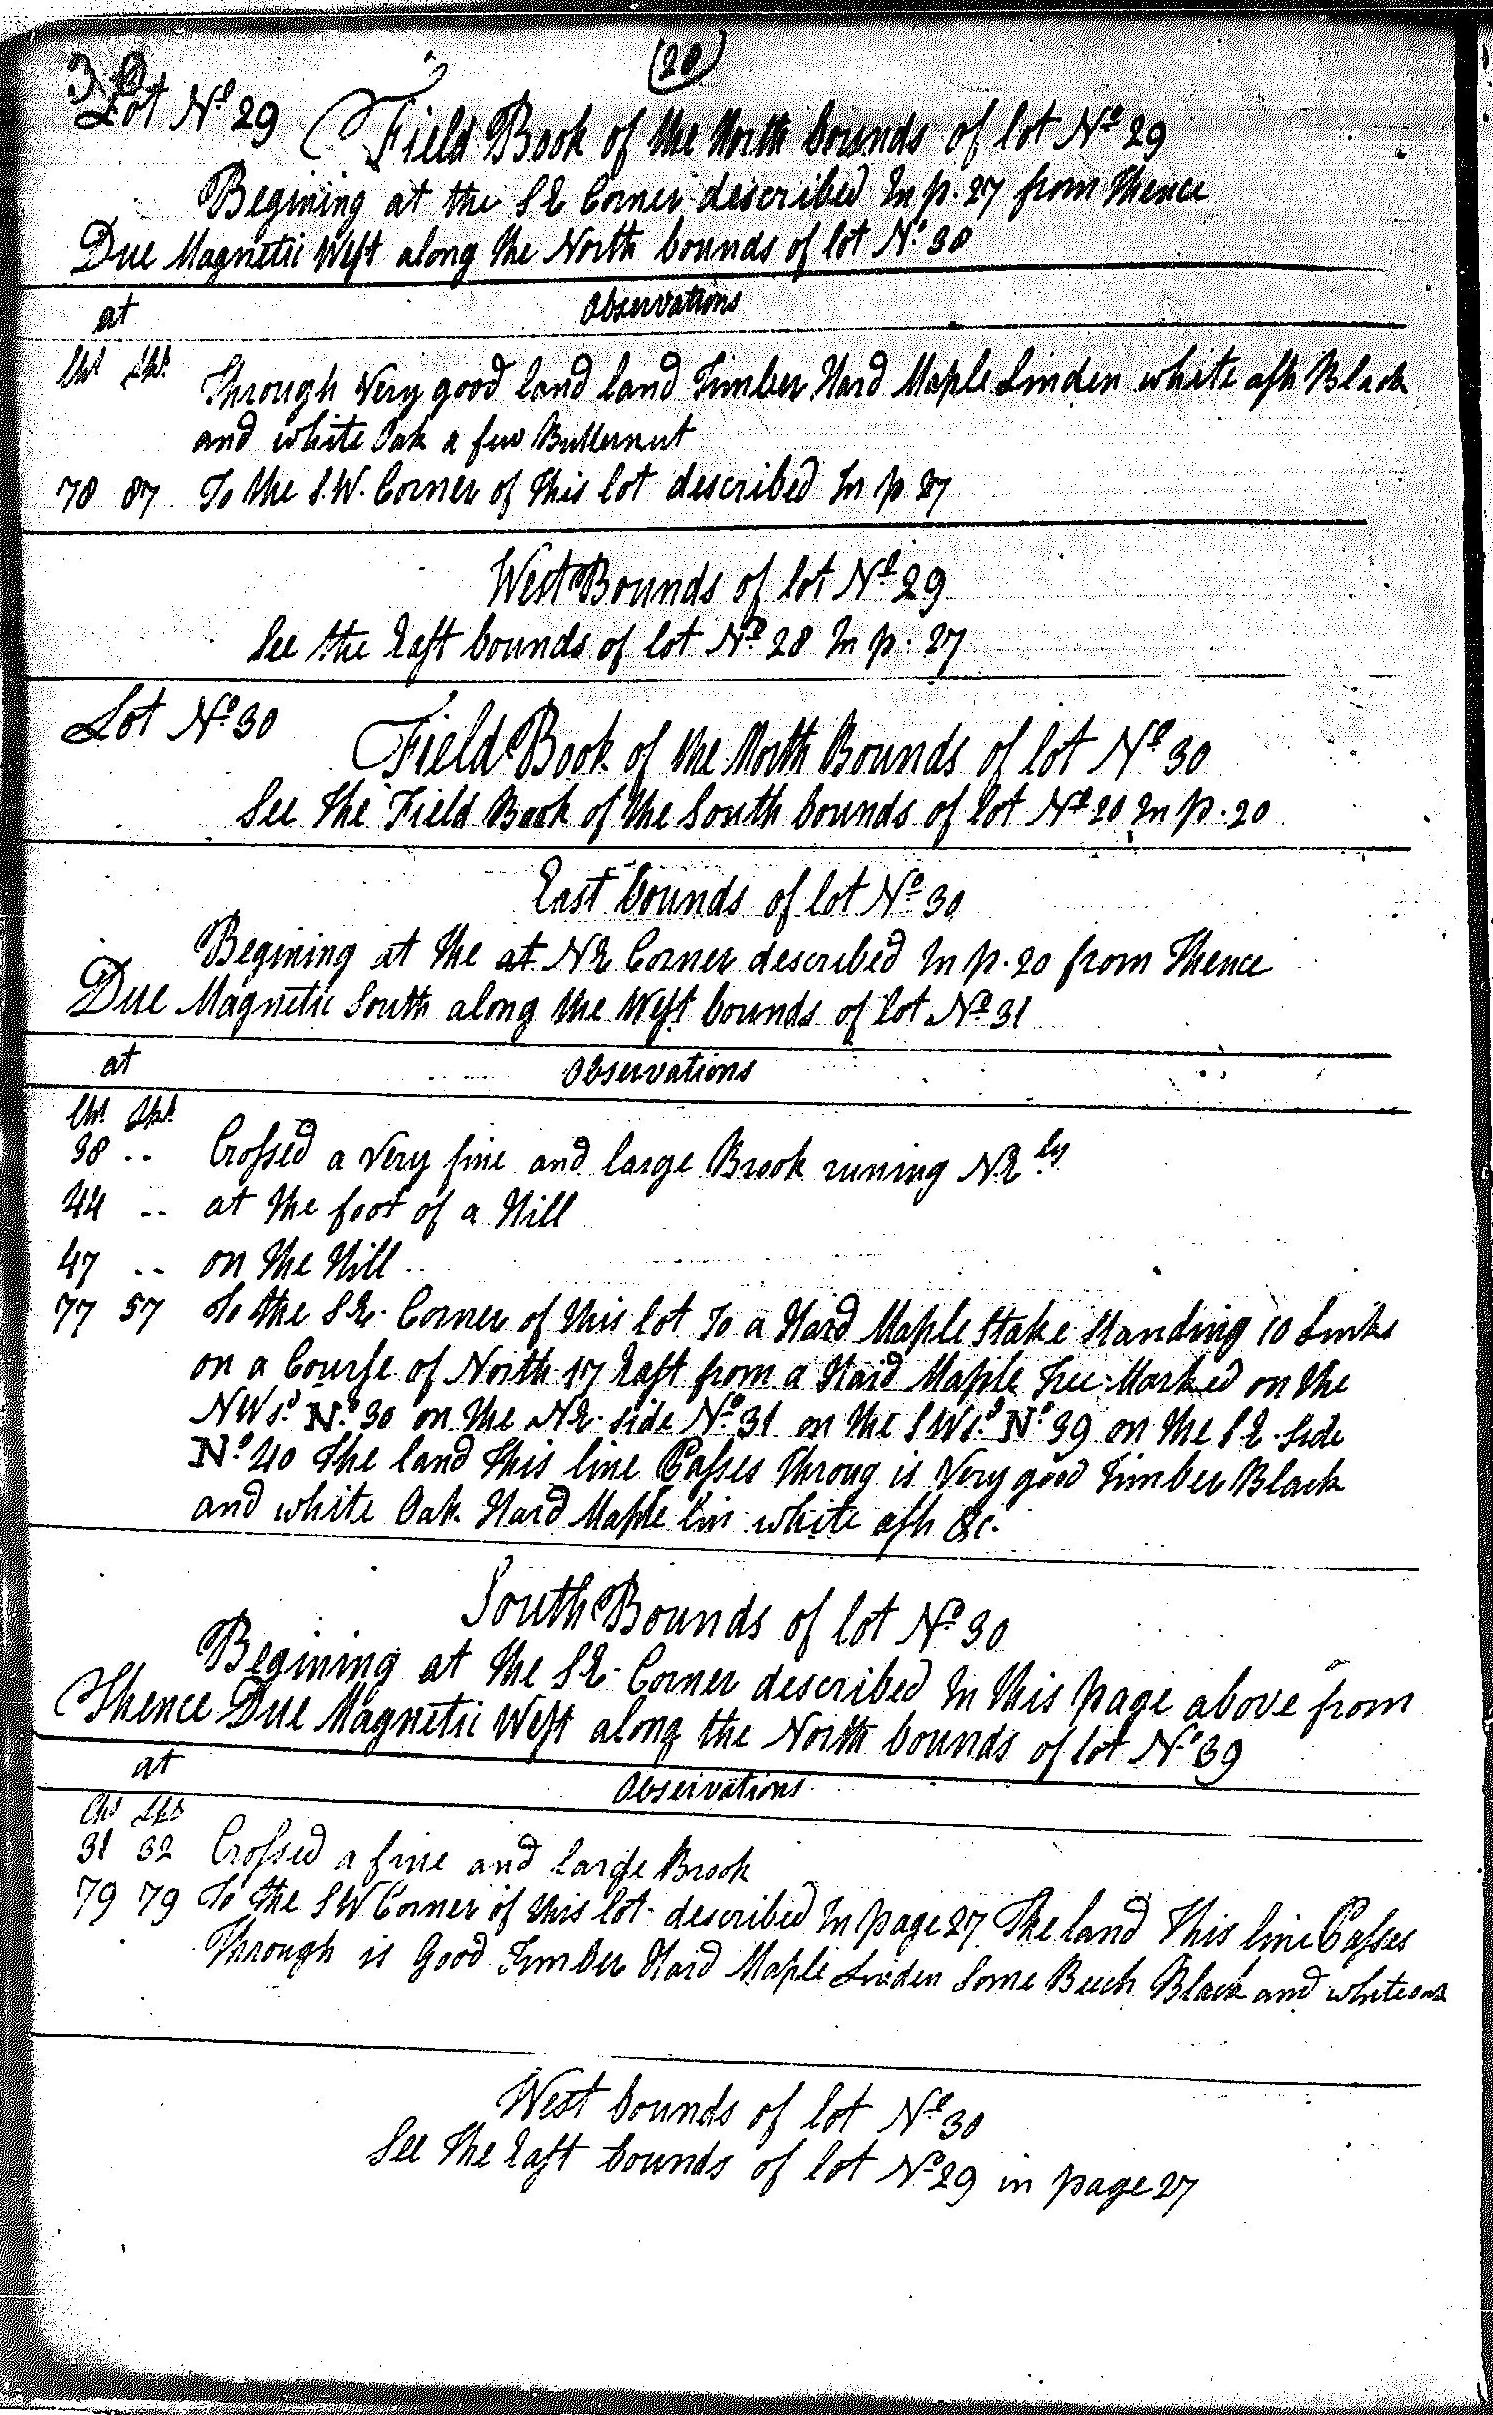 30
(28)
Lot No 29 Field Book of the North bounds of lot No 29
Begining at the S E Corner described In p. 27 from Thence
Due Magnetic West along the North bounds of lot No 38
at Observations
Chs Lks Through Very good land land Timber Hard Maple Linden white ash Black
and white Oak a few Butternut
78 87 To the S.W. Corner of this lot described In p 27
West Bounds of lot No 29
See the East bounds of lot No 28 In p. 27
Lot No 30 Field Book of the North Bounds of lot No 30
See the Field Book of the South bounds of lot No 20 In p. 20
East bounds of lot No 30
Begining at the at N E Corner described In p. 20 from Thence
Due Magnetic South along the West bounds of lot No 31
at Observations
Chs. Lks.
38 .. Crossed a Very fine and large Brook runing N E ly
44 .. at the foot of a Hill
47 .. on the Hill
77 57 To the S E. Corner of this lot To a Hard Maple Stake Standing 10 Links
on a Course of North 17 East from a Hard Maple Tree Marked on the
N W s.d No 30 on the N E. side No 31 on the S W s.d No 39 on the S E. Side
No 40 The land this line Passes Throug is Very good Timber Black
and white Oak Hard Maple Lin white ash &c.
South Bounds of lot No 30
Begining at the S E. Corner described In this page above from
Thence Due Magnetic West along the North bounds of lot No 39
at Observations
Chs Lks
31 32 Crossed a fine and large Brook
79 79 To the S W Corner of this lot described In page 27 The land This line Passes
Through is Good Timber Hard Maple Linden Some Beech Black and white oak
West bounds of lot No 30
See The East bounds of lot No 29 in page 27